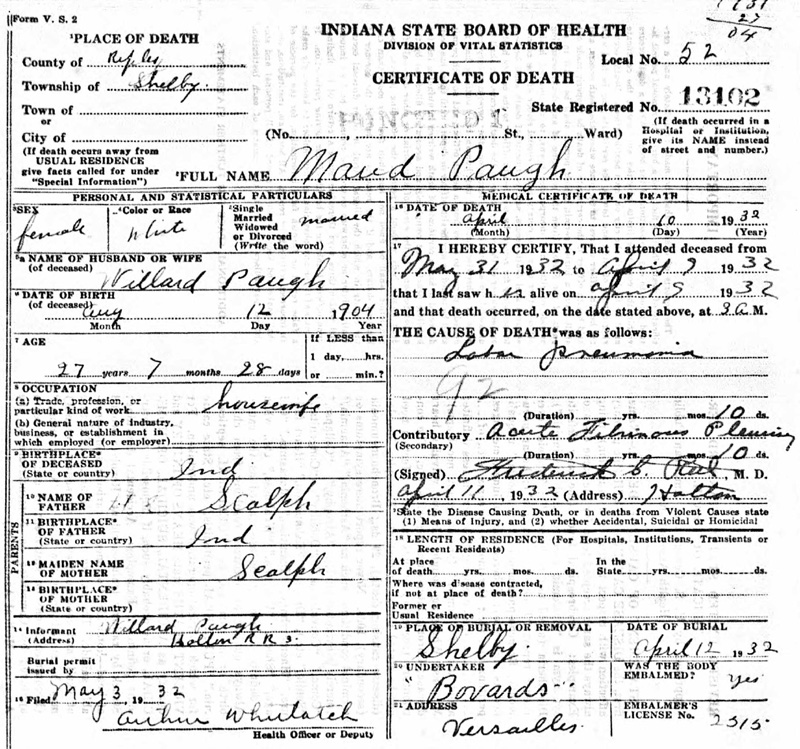 Form V. S. 2
1931
27
04
INDIANA STATE BOARD OF HEALTH
DIVISION OF VITAL STATISTICS
CERTIFICATE OF DEATH
Local No. 52
State Registered No. 13102
(If death occurred in a Hospital or Institution, give its NAME instead of street and number.)
¹PLACE OF DEATH
County of Ripley
Township of Shelby
Town of
or
City of
(No. , St., Ward)
(If death occurs away from USUAL RESIDENCE give facts called for under "Special Information")
²FULL NAME Maud Paugh
PERSONAL AND STATISTICAL PARTICULARS
³SEX
female
⁴Color or Race
White
⁵Single Married Widowed or Divorced (Write the word)
married
⁵ᵃ NAME OF HUSBAND OR WIFE
(of deceased)
Willard Paugh
⁶ DATE OF BIRTH
(of deceased) Aug 12 1904
Month Day Year
⁷ AGE
27 years 7 months 28 days
If LESS than
1 day, hrs.
or min.?
⁸ OCCUPATION
(a) Trade, profession, or particular kind of work housewife
(b) General nature of industry, business, or establishment in which employed (or employer)
⁹ BIRTHPLACE OF DECEASED (State or country) Ind
PARENTS
¹⁰ NAME OF FATHER Scalph
¹¹ BIRTHPLACE OF FATHER (State or country) Ind
¹² MAIDEN NAME OF MOTHER Scalph
¹³ BIRTHPLACE OF MOTHER (State or country)
¹⁴ Informant Willard Paugh
(Address) Holton R R 3.
Burial permit issued by
¹⁵ Filed May 3, 1932
Arthur Whitlatch
Health Officer or Deputy
MEDICAL CERTIFICATE OF DEATH
¹⁶ DATE OF DEATH
April 10 1932
(Month) (Day) (Year)
¹⁷ I HEREBY CERTIFY, That I attended deceased from
May 31 1932 to April 9 1932
that I last saw her alive on April 9 1932
and that death occurred, on the date stated above, at 3 A M.
THE CAUSE OF DEATH* was as follows:
Lobar pneumonia
92
(Duration) yrs. mos. 10 ds.
Contributory Acute Fibrinous Pleurisy
(Secondary)
(Duration) yrs. mos. 10 ds.
(Signed) Frederick C. M. D.
April 11, 1932 (Address) Holton
*State the Disease Causing Death, or in deaths from Violent Causes state (1) Means of Injury, and (2) whether Accidental, Suicidal or Homicidal
¹⁸ LENGTH OF RESIDENCE (For Hospitals, Institutions, Transients or Recent Residents)
At place of death yrs. mos. ds.
In the State yrs. mos. ds.
Where was disease contracted, if not at place of death?
Former or Usual Residence
¹⁹ PLACE OF BURIAL OR REMOVAL
Shelby
DATE OF BURIAL
April 12 1932
²⁰ UNDERTAKER
Bovards
WAS THE BODY EMBALMED? Yes
²¹ ADDRESS
Versailles
EMBALMER'S LICENSE No. 2515